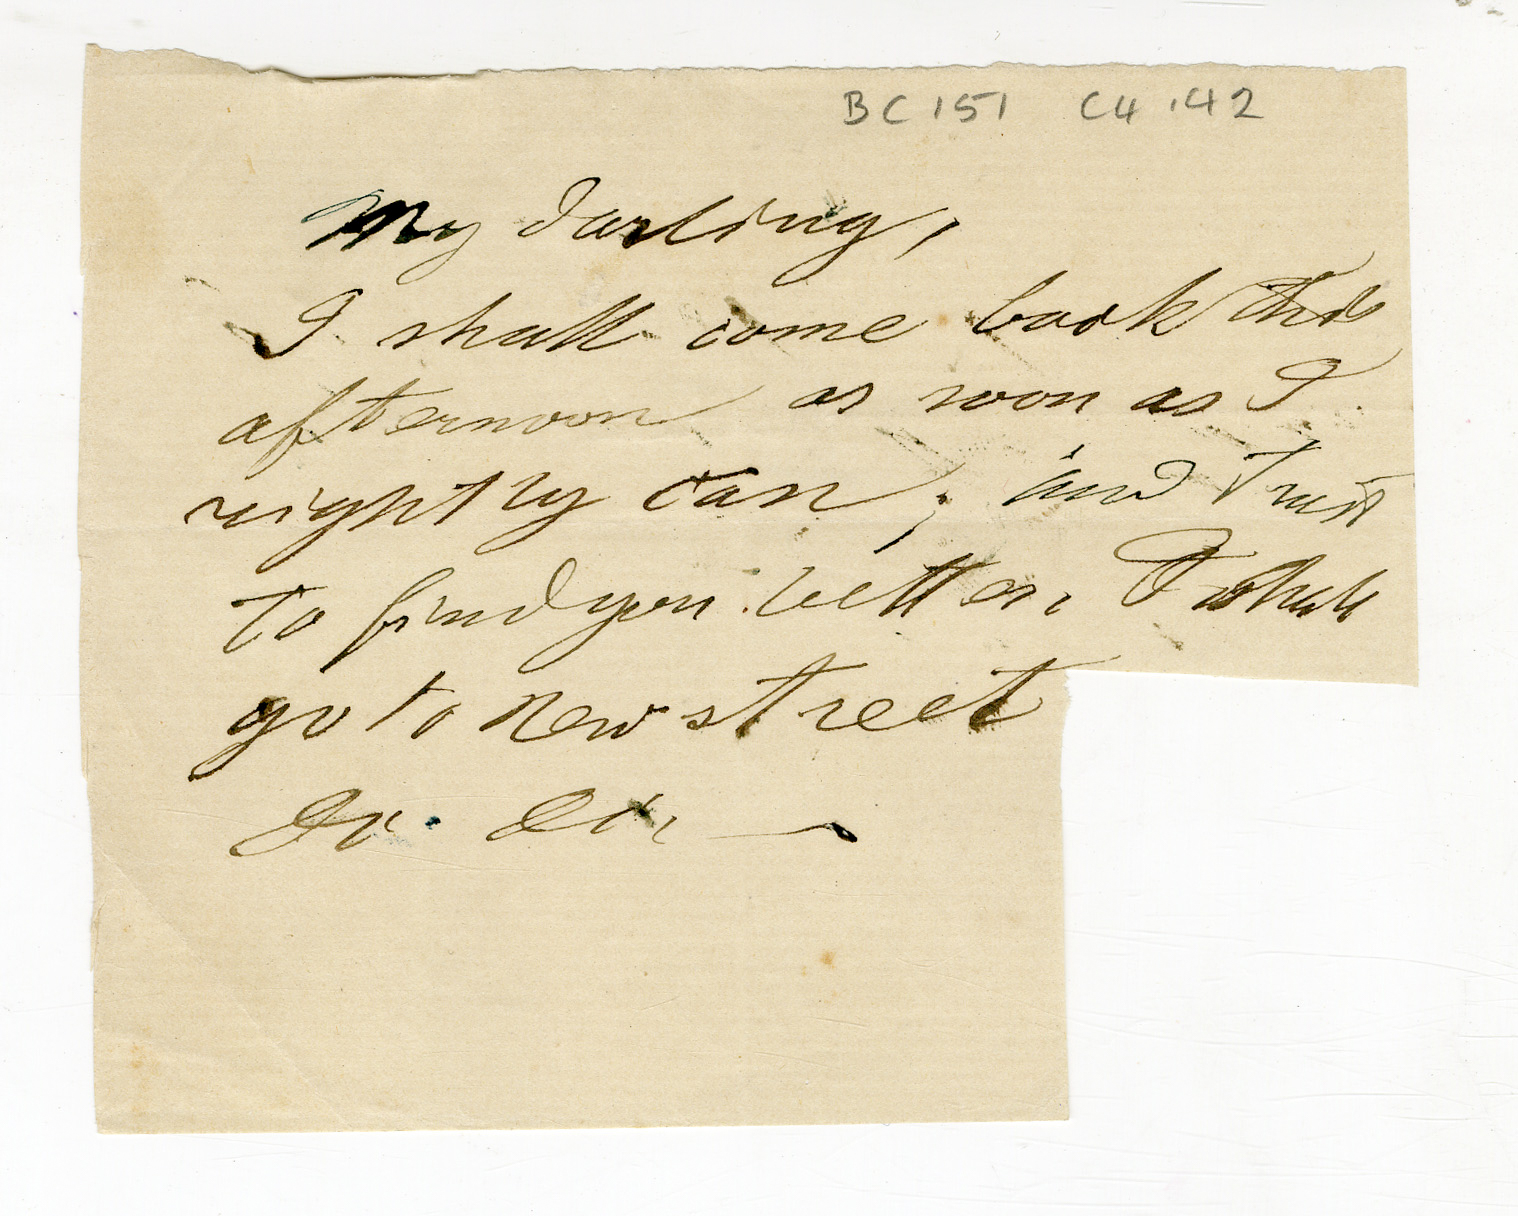 BC 151 C4.42
My darling,
I shall come back this
afternoon as soon as I
rightly can, and trust
to find you better. I shall
go to New street